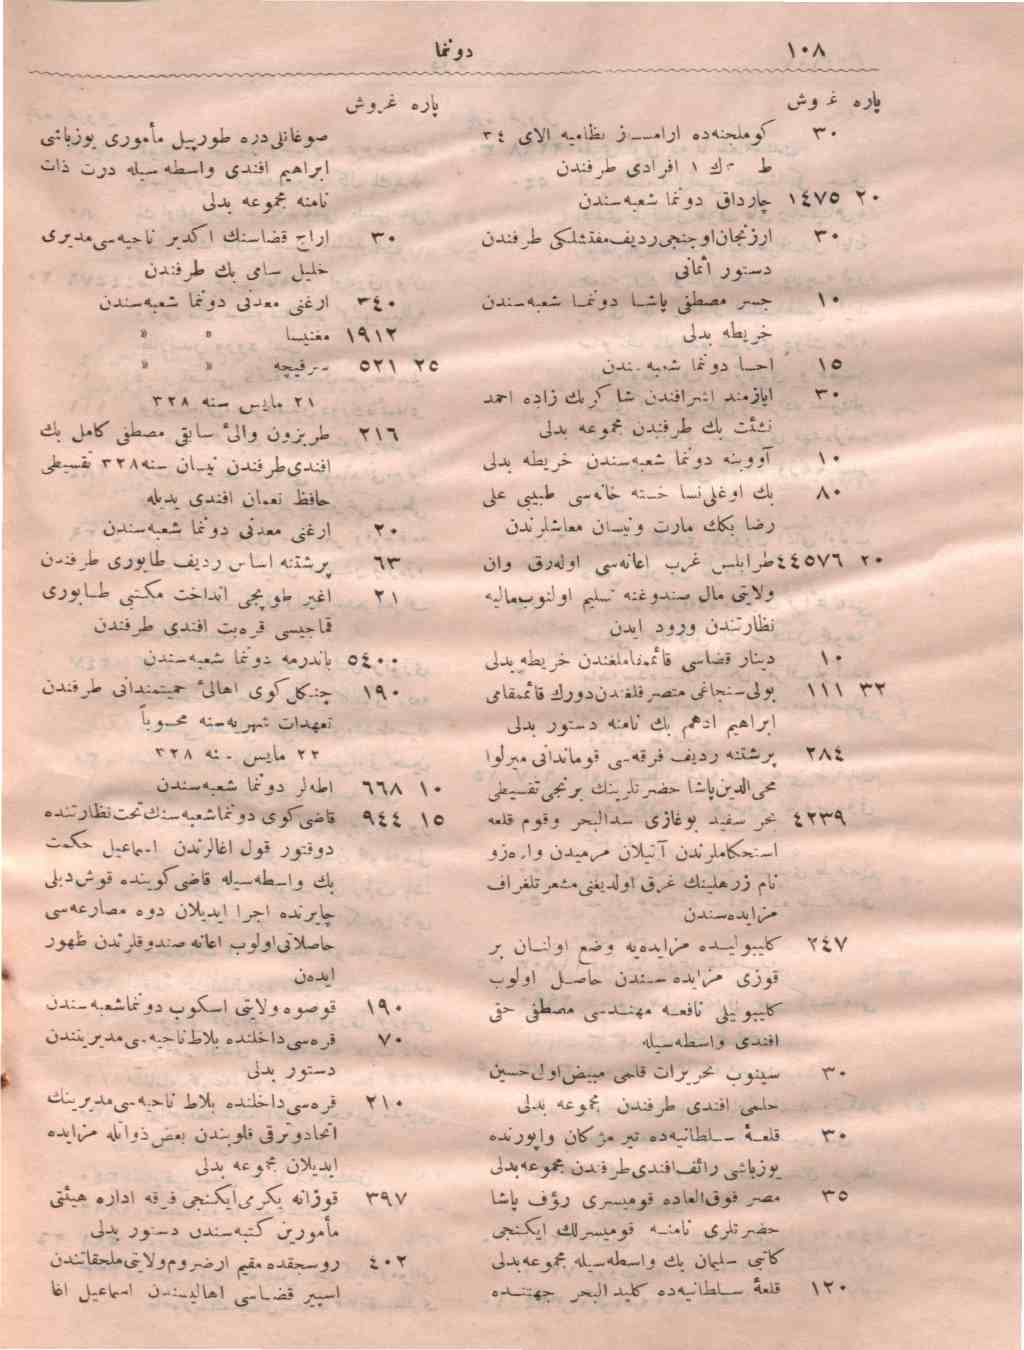 ١٠٨
دوننما
پاره غروش
٣٠ كوملجنه‌ده ارامساز نظاميه الای ٣٤
ط ٣ ك ١ افرادی طرفندن
٢٠ ١٤٧٥ چارداق دوننما شعبه‌سندن
٣٠ ارزنجان اوچنجی رديف مفتشلكی طرفندن
دستور اثمانی
١٠ جسر مصطفی پاشا دوننما شعبه‌سندن
خريطه بدلی
١٥ احسا دوننما شعبه‌سندن
٣٠ ايازمند اشرافندن شاكر بك زاده احمد
نشئت بك طرفندن مجموعه بدلی
١٠ آوونيه دوننما شعبه‌سندن خريطه بدلی
٨٠ بك اوغلی نسا خسته خانه‌سی طبيبی علی
رضا بكك مارت ونيسان معاشلرندن
٢٠ ٤٤٥٧٦ طرابلس غرب اعانه‌سی اوله‌رق وان
ولايتی مال صندوغنه تسليم اولنوب ماليه
نظارتندن ورود ايدن
١٠ دينار قضاسی قائممقاملغندن خريطه بدلی
٣٢ ١١١ بولی سنجاغی متصرفلغندن دورك قائممقامی
ابراهيم ادهم بك نامنه دستور بدلی
٢٨٤ پرشتنه رديف فرقه‌سی قوماندانی ميرلوا
محی الدين پاشا حضرتلرينك برنجی تقسيطی
٤٢٣٩ بحر سفيد بوغازی سدالبحر وقوم قلعه
استحكاملرندن آتيلان مرميدن واره‌زو
نام زرهلينك غرق اولديغنی مشعر تلغراف
مزايده‌سندن
٢٤٧ كليبوليده مزايده‌يه وضع اولنان بر
قوزی مزايده سندن حاصل اولوب
كليبوليلی نافعه مهندسی مصطفی حقی
افندی واسطه‌سيله
٣٠ سينوب تحريرات قلمی مبيض اولی حسين
حلمی افندی طرفندن مجموعه بدلی
٣٠ قلعهٔ سلطانيه‌ده تير مژكان واپورنده
يوزباشی رائف افندی طرفندن مجموعه بدلی
٣٥ مصر فوق العاده قوميسری رؤف پاشا
حضرتلری نامنه قوميسرلك ايكنجی
كاتبی سليمان بك واسطه‌سيله مجموعه بدلی
١٢٠ قلعهٔ سلطانيه‌ده كليد البحر جهتنده
پاره غروش
صوغانلی دره طورپيل مأموری يوزباشی
ابراهيم افندی واسطه سيله درت ذات
نامنه مجموعه بدلی
٣٠ اراج قضاسنك اكدير ناحيه‌سی مديری
خليل سامی بك طرفندن
٣٤٠ ارغنی معدنی دوننما شعبه‌سندن
١٩١٢ مغنيسا » »
٢٥ ٥٢١ سرفيچه » »
٢١ مايس سنه ٣٢٨
٢١٦ طربزون والیٔ سابقی مصطفی كامل بك
افندی طرفندن نيسان سنه ٣٢٨ تقسيطی
حافظ نعمان افندی يديله
٢٠ ارغنی معدنی دوننما شعبه‌سندن
٦٣ پرشتنه اساس رديف طابوری طرفندن
٢١ اغير طوپجی انداخت مكتبی طابوری
قماجيسی قره‌بت افندی طرفندن
٥٤٠٠ باندرمه دوننما شعبه‌سندن
١٩٠ چنكل كوی اهالیٔ حميتمندانی طرفندن
تعهدات شهريه‌سنه محسوباً
٢٢ مايس سنه ٣٢٨
١٠ ٦٦٨ اطه‌لر دوننما شعبه‌سندن
١٥ ٩٤٤ قاضی كوی دوننما شعبه سنك تحت نظارتنده
دوقتور قول اغالرندن اسماعيل حكمت
بك واسطه‌سيله قاضی كوينده قوش ديلی
چايرنده اجرا ايديلان دوه مصارعه‌سی
حاصلاتی اولوب اعانه صندوقلرندن ظهور
ايده‌ن
١٩٠ قوصوه ولايتی اسكوب دوننما شعبه سندن
٧٠ قره‌سی داخلنده بلاط ناحيه‌سی مديريتندن
دستور بدلی
٢١٠ قره‌سی داخلنده بلاط ناحيه‌سی مديرينك
اتحاد وترقی قلوبندن بعض ذواتله مزايده
ايديلان مجموعه بدلی
٣٩٧ قوزانه يكرمی ايكنجی فرقه اداره هيئتی
مأمورين كتبه سندن دستور بدلی
٤٠٢ روسجقده مقيم ارضروم ولايتی ملحقاتندن
اسپير قضاسی اهاليسندن اسماعيل اغا